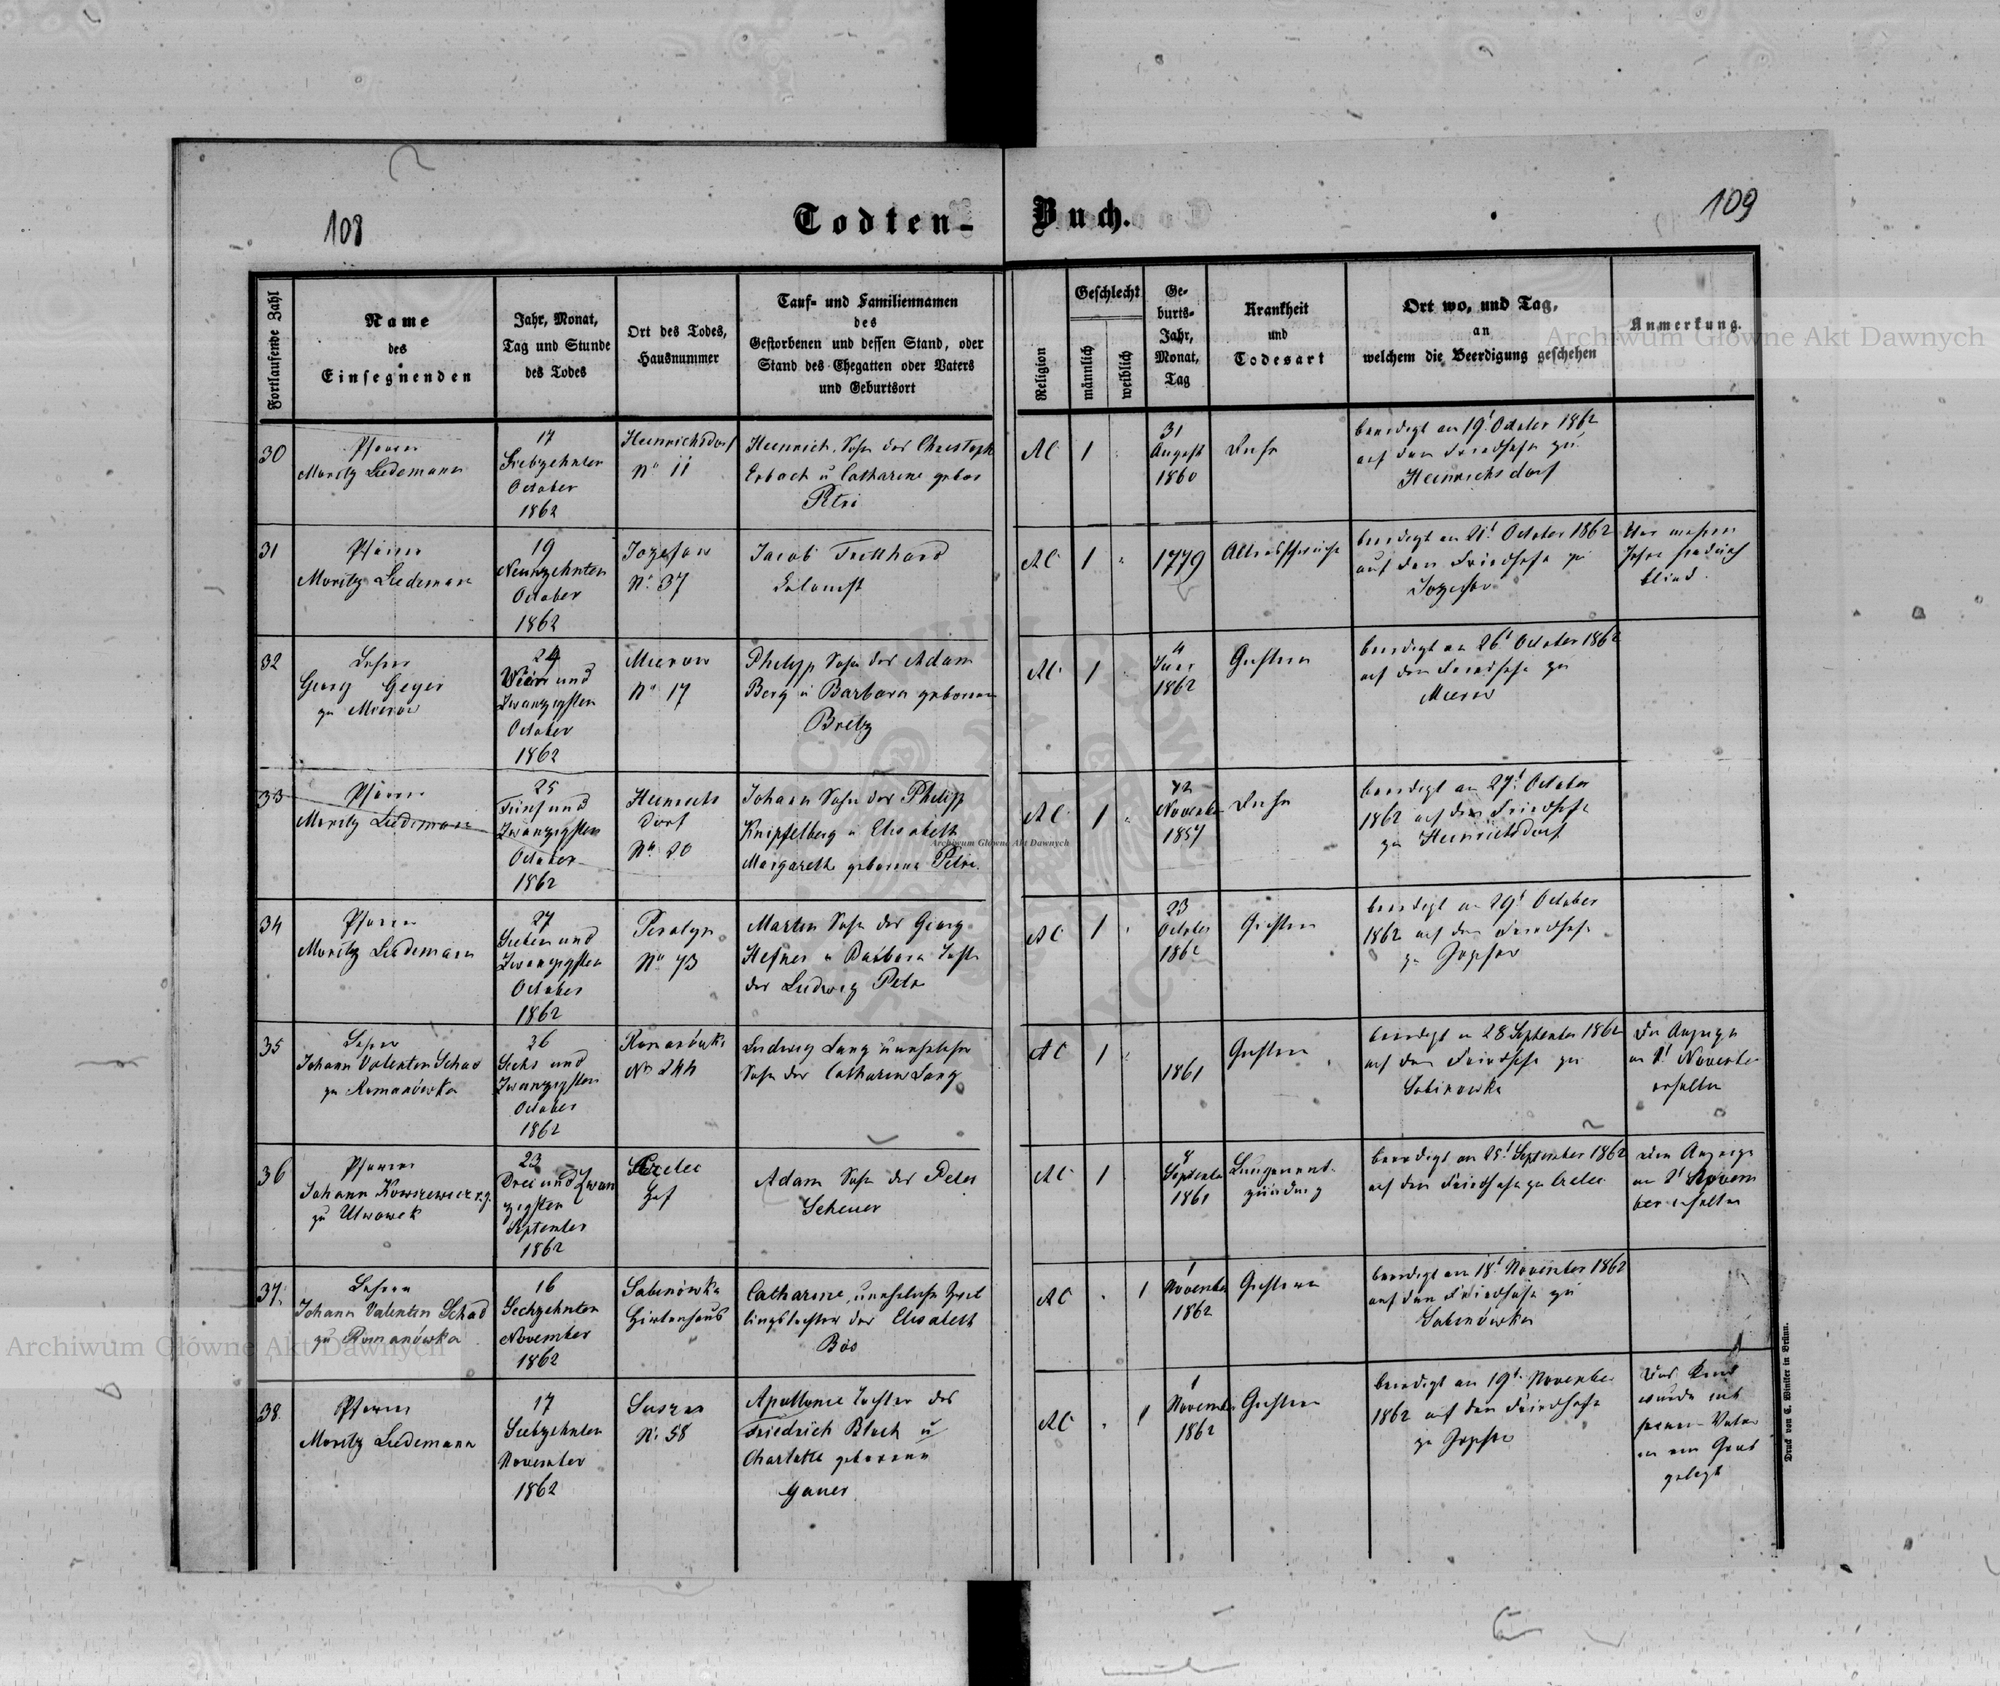 108
Todten-
Buch.
109
Fortlaufende Zahl
Name
des
Einsegnenden
Jahr, Monat,
Tag und Stunde
des Todes
Ort des Todes,
Hausnummer
Tauf- und Familiennamen
des
Gestorbenen und dessen Stand, oder
Stand des Ehegatten oder Vaters
und Geburtsort
Religion
Geschlecht
männlich
weiblich
Ge-
burts-
Jahr,
Monat,
Tag
Krankheit
und
Todesart
Ort wo, und Tag,
an
welchem die Beerdigung geschehen
Anmerkung.
30
Pfarrer
Moritz Ludemann
17
Siebzehnten
October
1862
Heinrichsdorf
No 11
Heinrich, Sohn des Christoph
Erbach u Catharine gebor
Petri
AC
1
31
August
1860
Ruhr
beerdigt am 19t October 1862
auf dem Friedhofe zu
Heinrichsdorf
31
Pfarrer
Moritz Ludemann
19
Neunzehnten
October
1862
Jozefow
No 37
Jacob
Colonist
AC
1
1779
Altersschwäche
beerdigt am 21t October 1862
auf dem Friedhofe zu
Jozefow
War mehrere
Jahre hindurch
blind.
32
Lehrer
Georg Geyer
zu Mierow
24
Vier und
Zwanzigsten
October
1862
Mierow
No 17
Philipp Sohn des Adam
Berg u Barbara geborene
Bretz
AC
1
4
1862
beerdigt am 26t October 1862
auf dem Friedhofe zu
Mierow
33
Pfarrer
Moritz Ludemann
25
Fünf und
Zwanzigsten
October
1862
Heinrichs
dorf
No 20
Johann Sohn des Philipp
Knipfelberg u Elisabeth
Margareth geborene Petri.
AC
1
November
1857
Ruhr
beerdigt am 27t October
1862 auf dem Friedhofe
zu Heinrichsdorf
34
Pfarrer
Moritz Ludemann
27
Sieben und
Zwanzigsten
October
1862
No 73
Martin Sohn des Georg
Hefner u Barbara Tocht
des Ludwig Petri
AC
1
23
October
1862
beerdigt am 29t October
1862 auf dem Friedhofe
zu Jozefow
35
Lehrer
Johann Valentin Schad
zu Romanówka
26
Sechs und
Zwanzigsten
October
1862
Romanówka
No 244
Ludwig Lang unehelicher
Sohn der Catharina Lang
AC
1
1861
beerdigt am 28 September 1862
auf dem Friedhofe zu
Sabinowka
Die Anzeige
am 1t November
erhalten
36
Pfarrer
Johann
zu Utwowek
23
Drei und Zwan
zigsten
September
1862
Hof
Adam Sohn des Peter
Scheuer
AC
1
September
1861
Lungenent-
zündung
beerdigt am 25t September 1862
auf dem Friedhofe zu
Die Anzeige
am 1t Novem
ber erhalten
37.
Lehrer
Johann Valentin Schad
zu Romanówka
16
Sechzehnten
November
1862
Sabinówka
Hirtenhaus
Catharine, uneheliche Zwil
lingstochter der Elisabeth
Bos
AC
1
1
November
1862
beerdigt am 18t November 1862
auf dem Friedhofe zu
Sabinówka
38.
Pfarrer
Moritz Ludemann
17
Siebzehnten
November
1862
Suszno
No 58
Apollonie Tochter des
Friedrich Bloch u
Charlotte geborene
Gauer
AC
1
1
November
1862
beerdigt am 19t November
1862 auf dem Friedhofe
zu Jozefow
Das Kind
wurde mit
seinem Vater
in ein Grab
gelegt
Druck von C. Winiker in Brünn.
Archiwum Główne Akt Dawnych
Archiwum Główne Akt Dawnych
Archiwum Główne Akt Dawnych